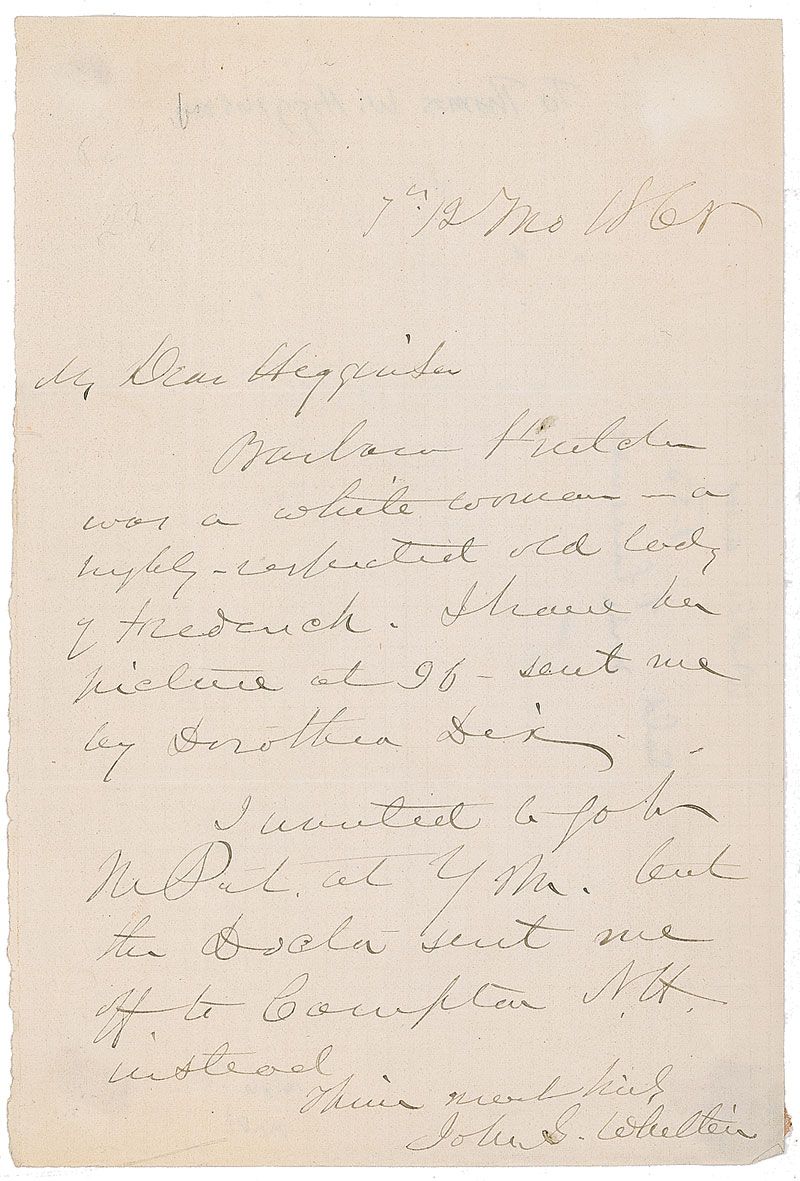 7th 12 Mo 1868
My Dear Higginson
Barbara Frietchie
was a white woman — a
highly-respected old lady
of Frederick. I have her
picture at 96 — sent me
by Dorothea Dix.
I wanted to go to
at but
the Doctor sent me
off to Campton N.H.
instead
Thine most truly
John G. Whittier